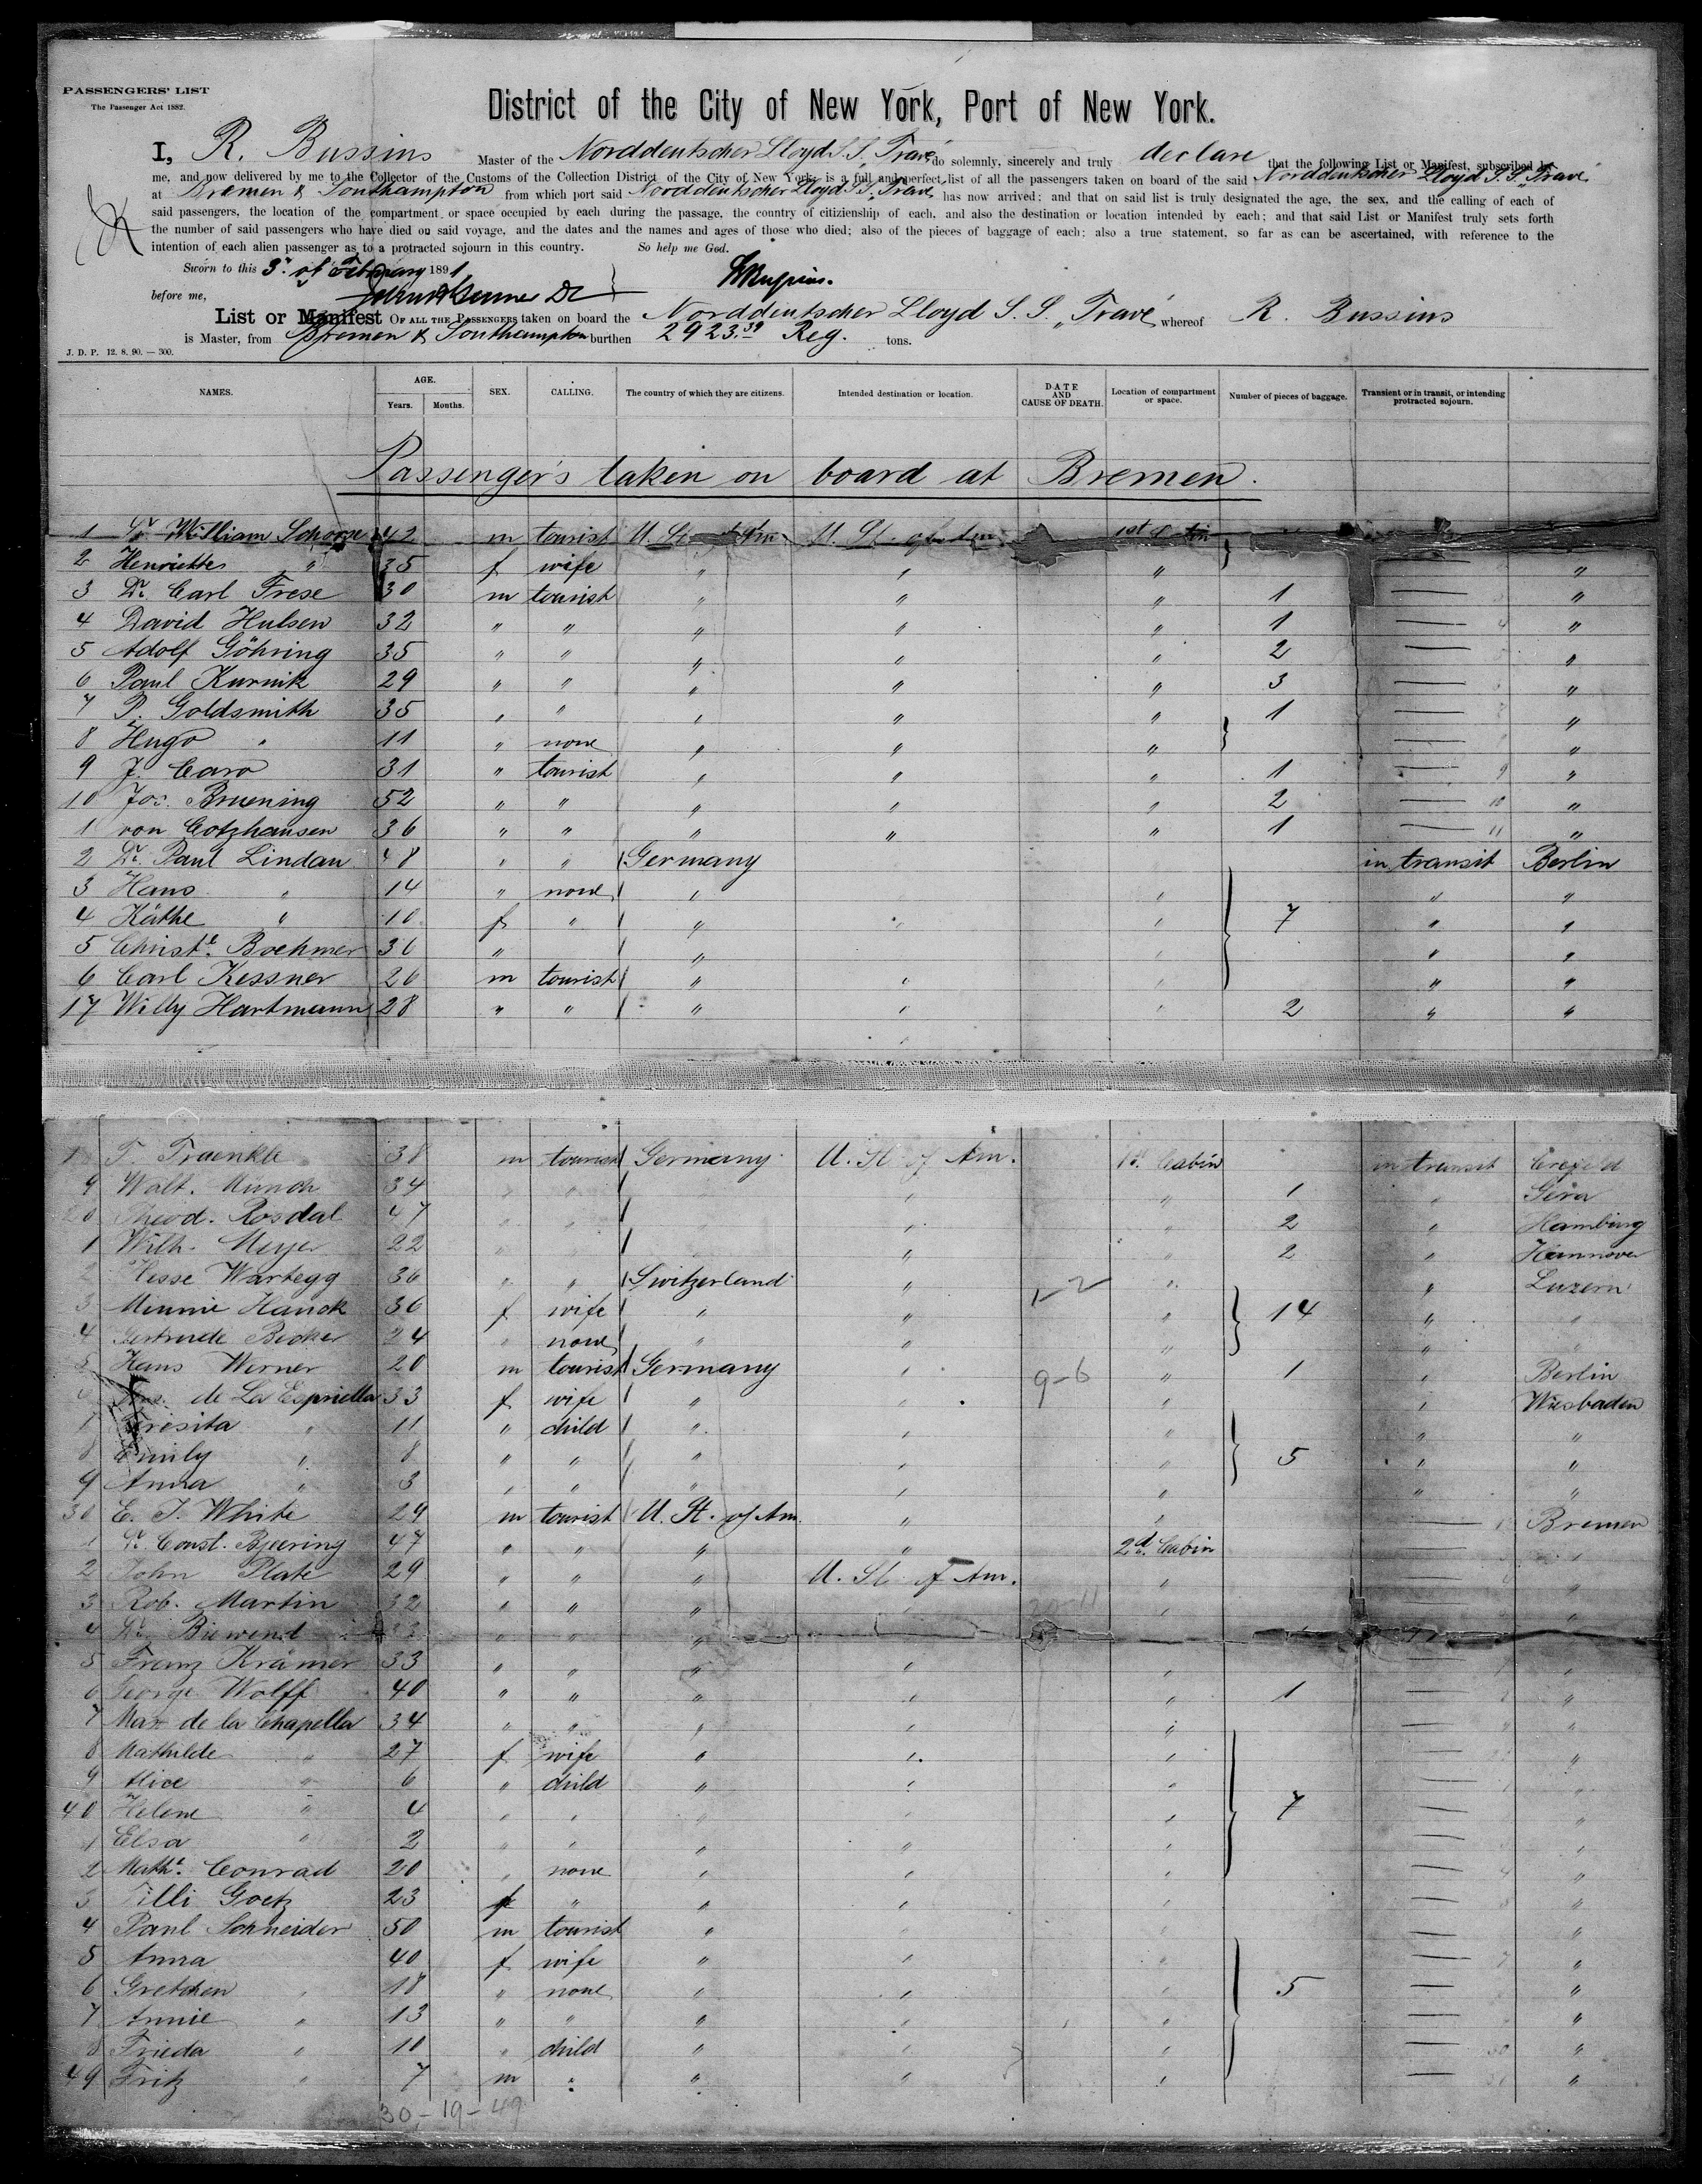 PASSENGERS' LIST
The Passenger Act 1882.
District of the City of New York, Port of New York.
I, R. Bussius Master of the Norddeutscher Lloyd S.S. „Trave" do solemnly, sincerely and truly declare that the following List or Manifest, subscribed by
me, and now delivered by me to the Collector of the Customs of the Collection District of the City of New York, is a full and perfect list of all the passengers taken on board of the said Norddeutscher Lloyd S.S. „Trave"
at Bremen & Southampton from which port said Norddeutscher Lloyd S.S. „Trave" has now arrived; and that on said list is truly designated the age, the sex, and the calling of each of
said passengers, the location of the compartment or space occupied by each during the passage, the country of citizienship of each, and also the destination or location intended by each; and that said List or Manifest truly sets forth
the number of said passengers who have died on said voyage, and the dates and the names and ages of those who died; also of the pieces of baggage of each; also a true statement, so far as can be ascertained, with reference to the
intention of each alien passenger as to a protracted sojourn in this country. So help me God.
Sworn to this 3. of February 1891
before me,
List or Manifest OF ALL THE PASSENGERS taken on board the Norddeutscher Lloyd S. S. „Trave" whereof R. Bussius
is Master, from Bremen & Southampton burthen 2923.39 Reg. tons.
J. D. P. 12. 8. 90. — 300.
NAMES. AGE. Years. Months. SEX. CALLING. The country of which they are citizens. Intended destination or location. DATE AND CAUSE OF DEATH. Location of compartment or space. Number of pieces of baggage. Transient or in transit, or intending protracted sojourn.
Passenger's taken on board at Bremen.
1 Dr William 42 m tourist U. St. of Am. U. St. of Am. 1st Cabin
2 Henriette " 35 f wife " " " "
3 Dr. Carl Frese 30 m tourist " " " 1 — "
4 David Hulsen 32 " " " " " 1 — "
5 Adolf Göhring 35 " " " " " 2 — "
6 Paul Kurnik 29 " " " " " 3 — "
7 P. Goldsmith 35 " " " " " 1 — "
8 Hugo " 11 " none " " " — "
9 J. Caro 31 " tourist " " " 1 — 9 "
10 Jos. Bruening 52 " " " " " 2 — 10 "
1 von Cotzhausen 36 " " " " " 1 — 11 "
2 Dr. Paul Lindau 48 " " Germany in transit Berlin
3 Hans " 14 " none " " " "
4 Käthe " 10 f " " " " 7 " "
5 Christe. Boehmer 36 " " " " "
6 Carl Kessner 26 m tourist " " " " "
17 Willy Hartmann 28 " " " " " 2 " "
T. Fraenkle 38 m tourist Germany U. St. of Am. 1st. Cabin in transit Crefeld
9 Walt. Münch 34 " " " " 1 " Gera
20 Theod. Rosdal 47 " " " " 2 " Hamburg
1 Wilh. Meyer 22 " " " " 2 " Hannover
2 Hesse Wartegg 36 " " Switzerland " 1-2 " " Luzern
3 Minnie Hauck 36 f wife " " " 14 " "
4 Gertrude Becker 24 " none " " " " "
5 Hans Werner 20 m tourist Germany " " 1 " Berlin
de La Espriella 33 f wife " " 9-6 " " Wiesbaden
Teresita " 11 " child " " " " "
8 Emily " 8 " " " " " 5 " "
9 Anna " 3 " " " " " " "
30 E. T. White 29 m tourist U. St. of Am. " " — Bremen
1 Dr. Const. Bjeering 47 " " " " 2d. Cabin
2 John Plate 29 " " " U. St. of Am. " — "
3 Rob. Martin 32 " " " " " — "
4 Dr. Biewend " " "
5 Franz Krämer 33 " " " " " — "
6 George Wolff 40 " " " " " 1 — "
7 Max de la Chapella 34 " " " " " — "
8 Mathilde " 27 f wife " " " — "
9 Alice " 6 " child " " " — "
40 Helene " 4 " " " " " 7 — "
1 Elsa " 2 " " " " " — "
2 Mathe. Conrad 20 " none " " " — "
3 Tilli Goetz 23 f " " " " — "
4 Paul Schneider 50 m tourist " " " — "
5 Anna 40 f wife " " " — "
6 Gretchen " 18 " none " " " 5 — "
7 Annie " 13 " " " " " — "
8 Frieda " 10 " child " " " — 30 "
49 Fritz " 7 m " " " " — 31 "
30 - 19 - 49